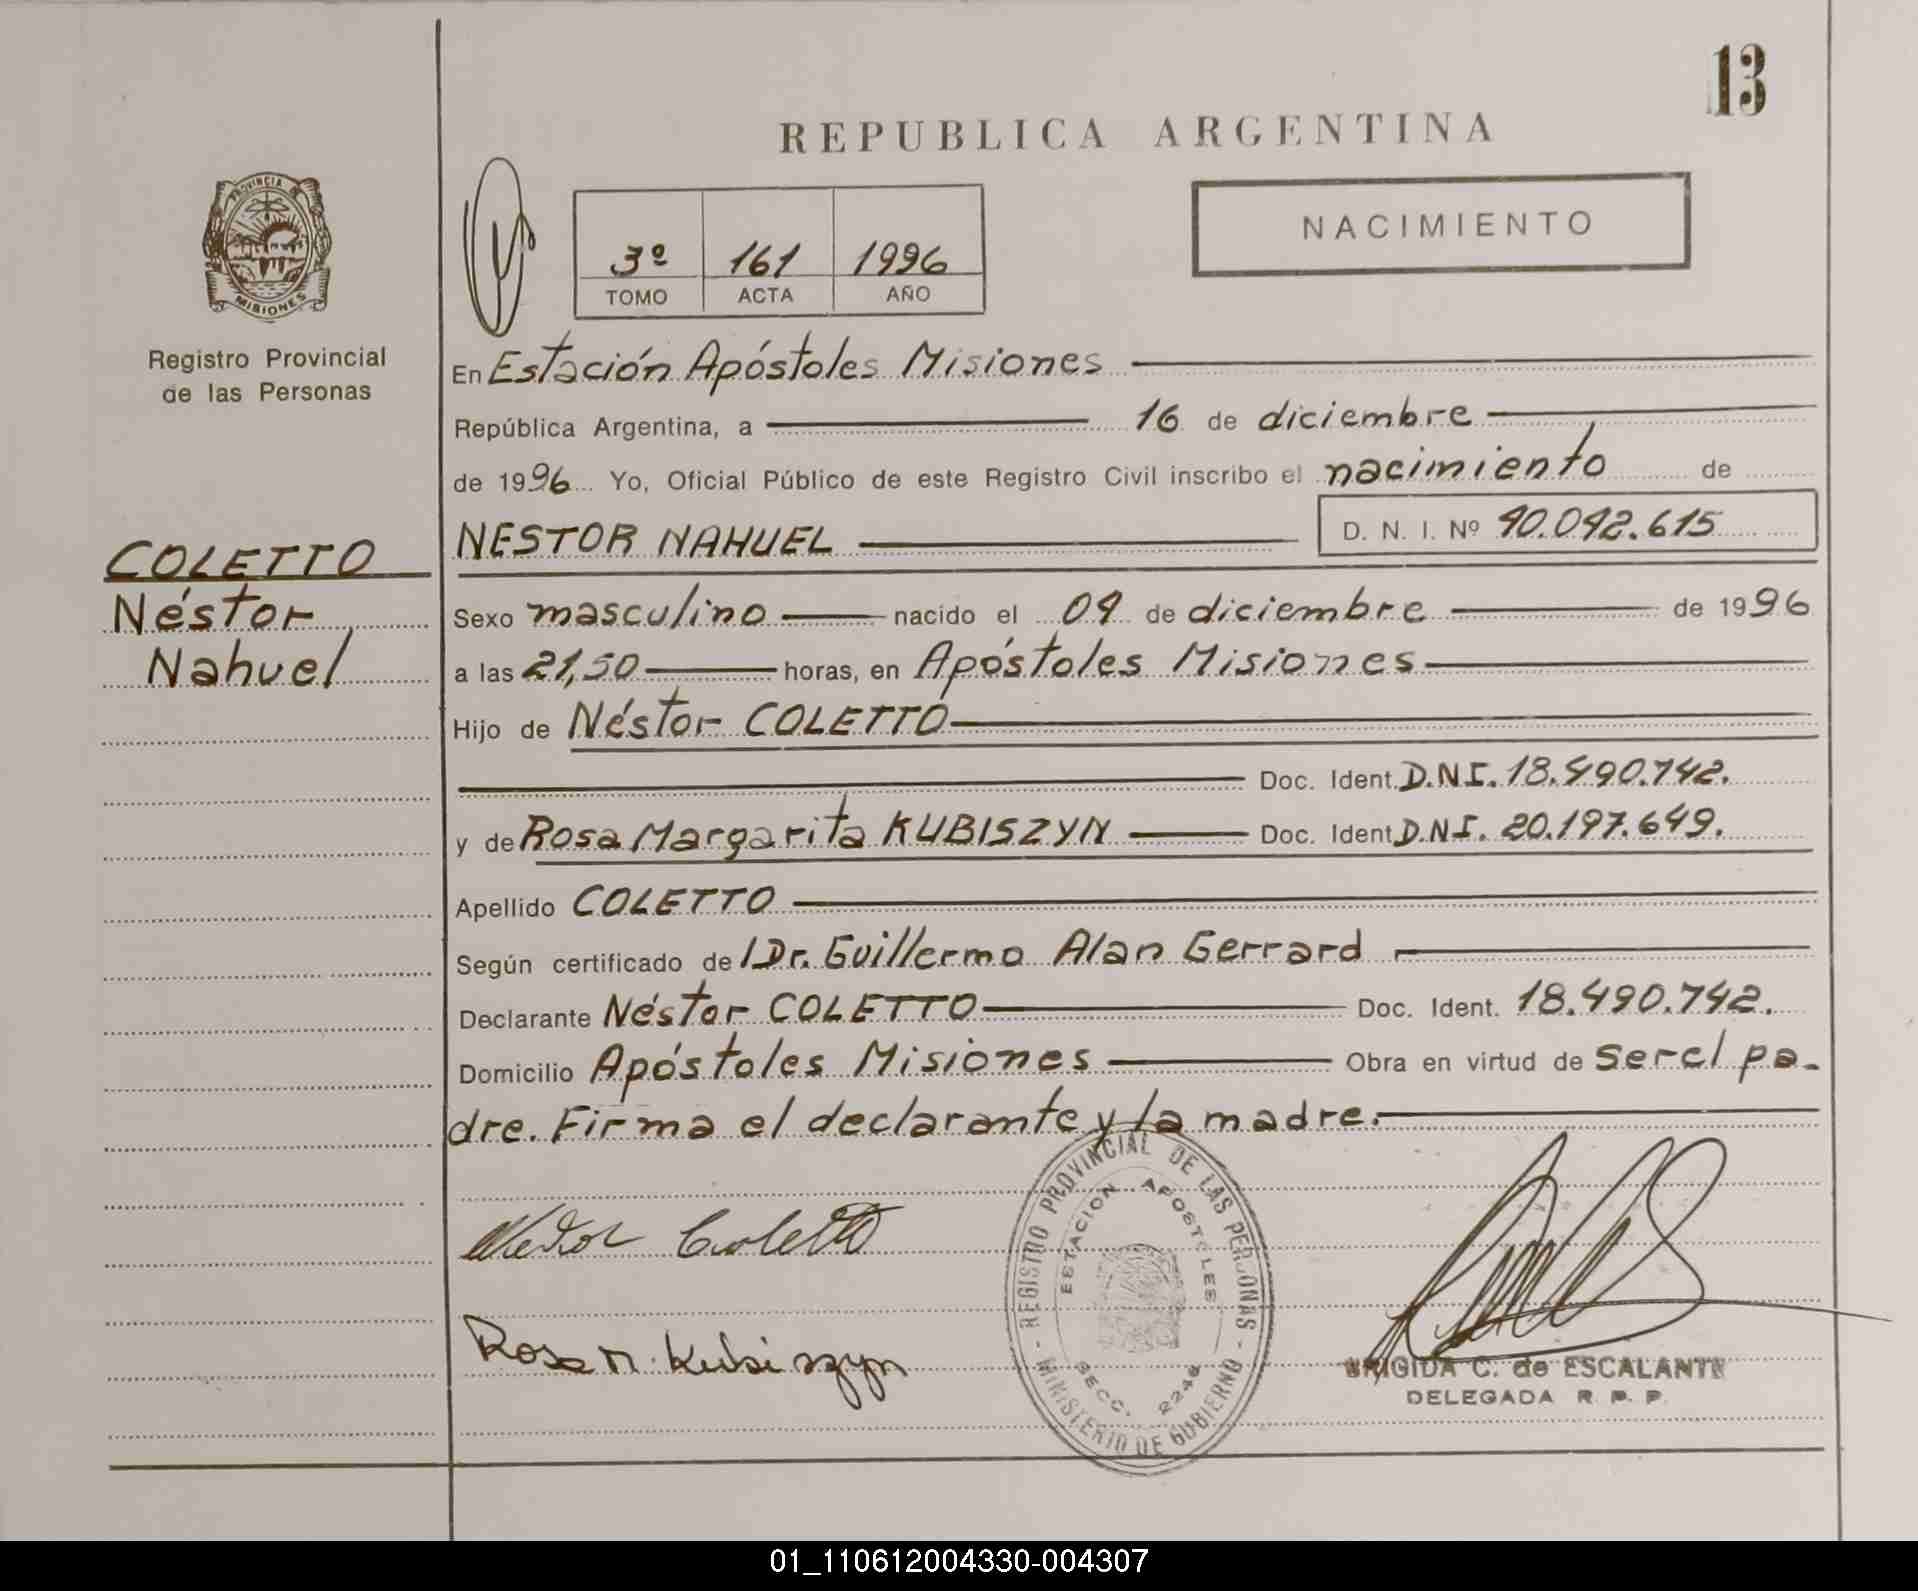 13
REPUBLICA ARGENTINA
PROVINCIA DE
MISIONES
Registro Provincial
de las Personas
3º 161 1996
TOMO ACTA AÑO
NACIMIENTO
En Estación Apóstoles Misiones
República Argentina, a 16 de diciembre
de 1996 Yo, Oficial Público de este Registro Civil inscribo el nacimiento de
NESTOR NAHUEL D. N. I. Nº 40.042.615
COLETTO
Néstor
Nahuel
Sexo masculino nacido el 09 de diciembre de 1996
a las 21,50 horas, en Apóstoles Misiones
Hijo de Néstor COLETTO
Doc. Ident. D.N.I. 18.490.742.
y de Rosa Margarita KUBISZYN Doc. Ident. D.N.I. 20.197.649.
Apellido COLETTO
Según certificado de l Dr. Guillermo Alan Gerrard
Declarante Néstor COLETTO Doc. Ident. 18.490.742.
Domicilio Apóstoles Misiones Obra en virtud de ser el pa-
dre. Firma el declarante y la madre.
REGISTRO PROVINCIAL DE LAS PERSONAS - MINISTERIO DE GOBIERNO -
ESTACION APOSTOLES
SECC. 2246
Nestor Coletto
Rosa M. Kubiszyn
BRIGIDA C. de ESCALANTE
DELEGADA R. P. P.
01_110612004330-004307